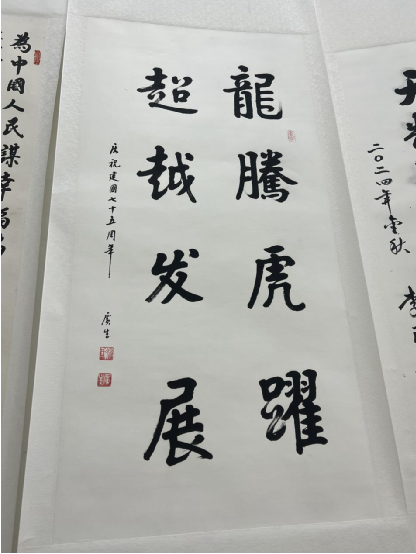 龍騰虎躍
超越发展
庆祝建國七十五周年
廣生
為中國人民謀幸福
二〇二四年金秋